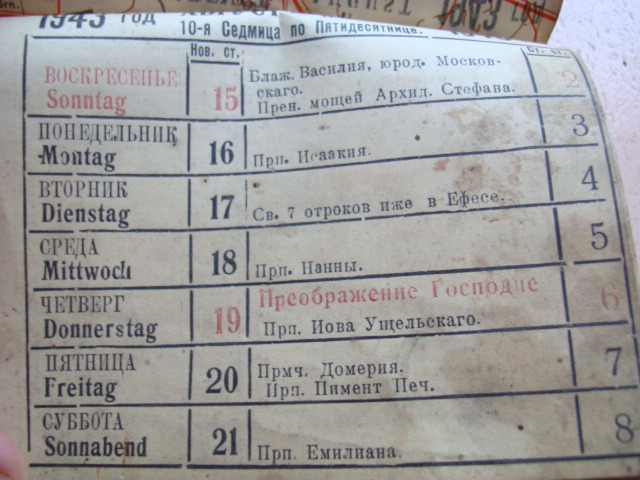 1943 ГОД
10-я Седмица по Пятидесятнице.
Нов. ст. Ст. ст.
ВОСКРЕСЕНЬЕ
Sonntag
15
Блаж. Василия, юрод. Москов-
скаго.
Прен. мощей Архид. Стефана.
2
ПОНЕДЕЛЬНИК
Montag
16
Прп. Исаакия.
3
ВТОРНИК
Dienstag
17
Св. 7 отроков иже в Ефесе.
4
СРЕДА
Mittwoch
18
Прп. Нанны.
5
ЧЕТВЕРГ
Donnerstag
19
Преображение Господне
Прп. Иова Ущельскаго.
6
ПЯТНИЦА
Freitag
20
Прмч. Домерия.
Прп. Пимент Печ.
7
СУББОТА
Sonnabend
21
Прп. Емилиана.
8